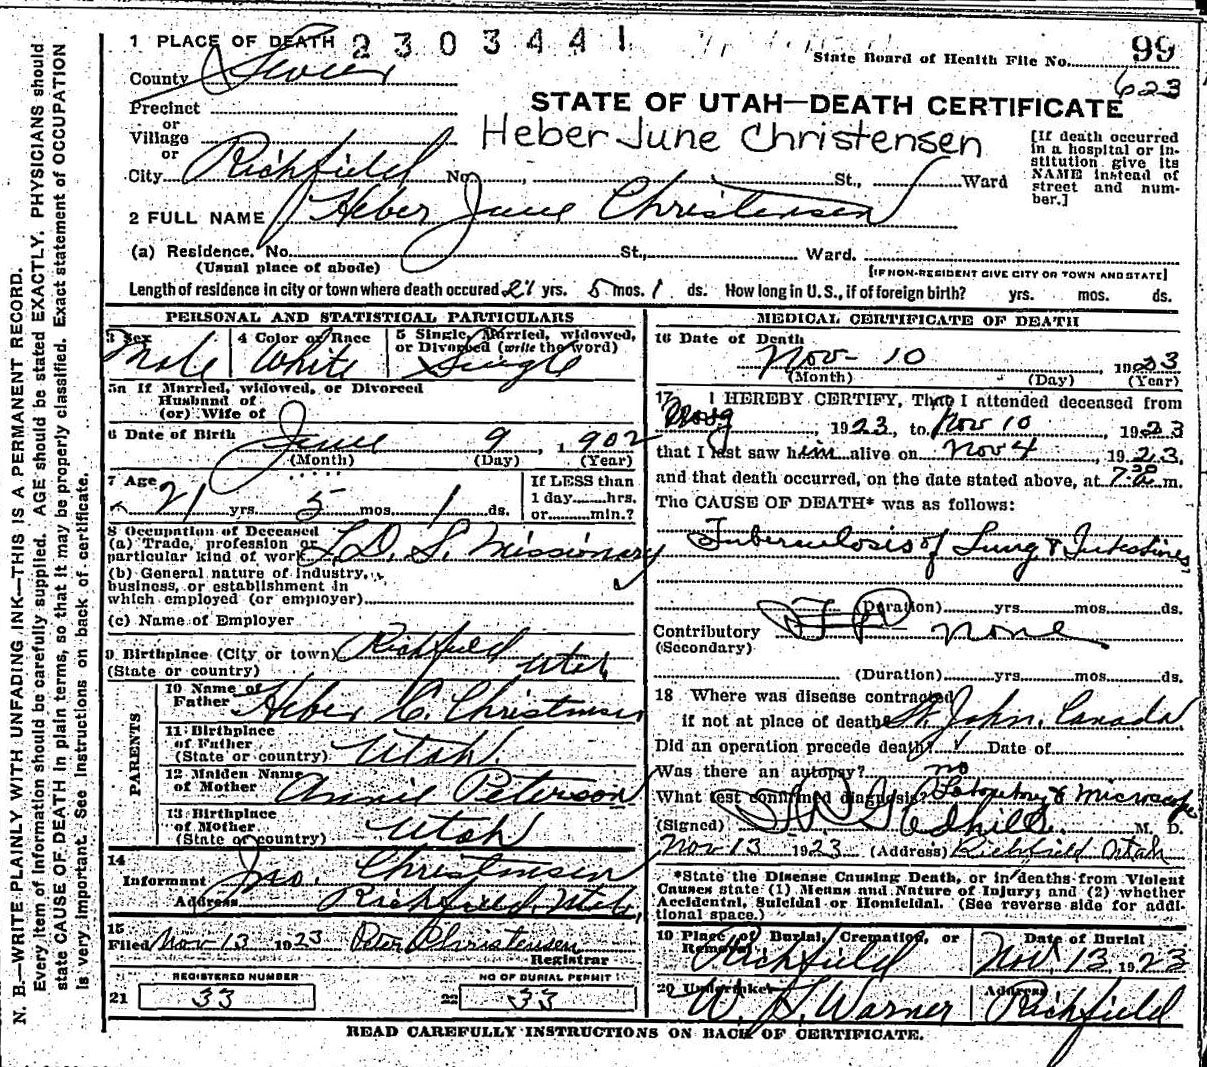 1 PLACE OF DEATH 2303441
State Board of Health File No. 99
County Sevier
623
Precinct
or
Village
or
City Richfield No. , St., Ward
STATE OF UTAH—DEATH CERTIFICATE
Heber June Christensen
[If death occurred
in a hospital or in-
stitution give its
NAME instead of
street and num-
ber.]
2 FULL NAME Heber June Christensen
(a) Residence. No. St., Ward.
(Usual place of abode)
[IF NON-RESIDENT GIVE CITY OR TOWN AND STATE]
Length of residence in city or town where death occured 21 yrs. 5 mos. 1 ds. How long in U.S., if of foreign birth? yrs. mos. ds.
PERSONAL AND STATISTICAL PARTICULARS
3 Sex 4 Color or Race 5 Single, Married, widowed,
or Divorced (write the word)
Male White Single
5a If Married, widowed, or Divorced
Husband of
(or) Wife of
6 Date of Birth June 9, 1902
(Month) (Day) (Year)
7 Age 21 yrs. 5 mos. 1 ds.
If LESS than
1 day hrs.
or min.?
8 Occupation of Deceased
(a) Trade, profession or
particular kind of work L. D. S. Missionary
(b) General nature of industry,
business, or establishment in
which employed (or employer)
(c) Name of Employer
9 Birthplace (City or town) Richfield
(State or country) Utah
PARENTS
10 Name of
Father Heber C. Christensen
11 Birthplace
of Father
(State or country) Utah.
12 Maiden Name
of Mother Annie Peterson
13 Birthplace
of Mother
(State or country) Utah
14
Informant Jno. Christensen
Address Richfield, Utah,
15
Filed Nov 13 1923 Peter Christensen
Registrar
REGISTERED NUMBER NO OF BURIAL PERMIT
21 33 22 33
MEDICAL CERTIFICATE OF DEATH
16 Date of Death
Nov- 10, 1923
(Month) (Day) (Year)
17 I HEREBY CERTIFY, That I attended deceased from
1923, to Nov 10, 1923
that I last saw him alive on Nov 4, 1923.
and that death occurred, on the date stated above, at m.
The CAUSE OF DEATH* was as follows:
Tuberculosis of Lung & Intestines
(Duration) yrs. mos. ds.
Contributory none
(Secondary)
(Duration) yrs. mos. ds.
18 Where was disease contracted
if not at place of death St John, Canada
Did an operation precede death? Date of
Was there an autopsy? no
What test confirmed diagnosis? Laboratory & microscope
(Signed) M. D.
Nov 13 1923 (Address) Richfield Utah
*State the Disease Causing Death, or in deaths from Violent
Causes state (1) Means and Nature of Injury; and (2) whether
Accidental, Suicidal or Homicidal. (See reverse side for addi-
tional space.)
19 Place of Burial, Cremation, or
Removal Richfield
Date of Burial
Nov, 13, 1923
20 Undertaker
W. S. Warner
Address
Richfield
READ CAREFULLY INSTRUCTIONS ON BACK OF CERTIFICATE.
N. B.—WRITE PLAINLY WITH UNFADING INK—THIS IS A PERMANENT RECORD.
Every item of information should be carefully supplied. AGE should be stated EXACTLY. PHYSICIANS should
state CAUSE OF DEATH in plain terms, so that it may be properly classified. Exact statement of OCCUPATION
is very important. See instructions on back of certificate.